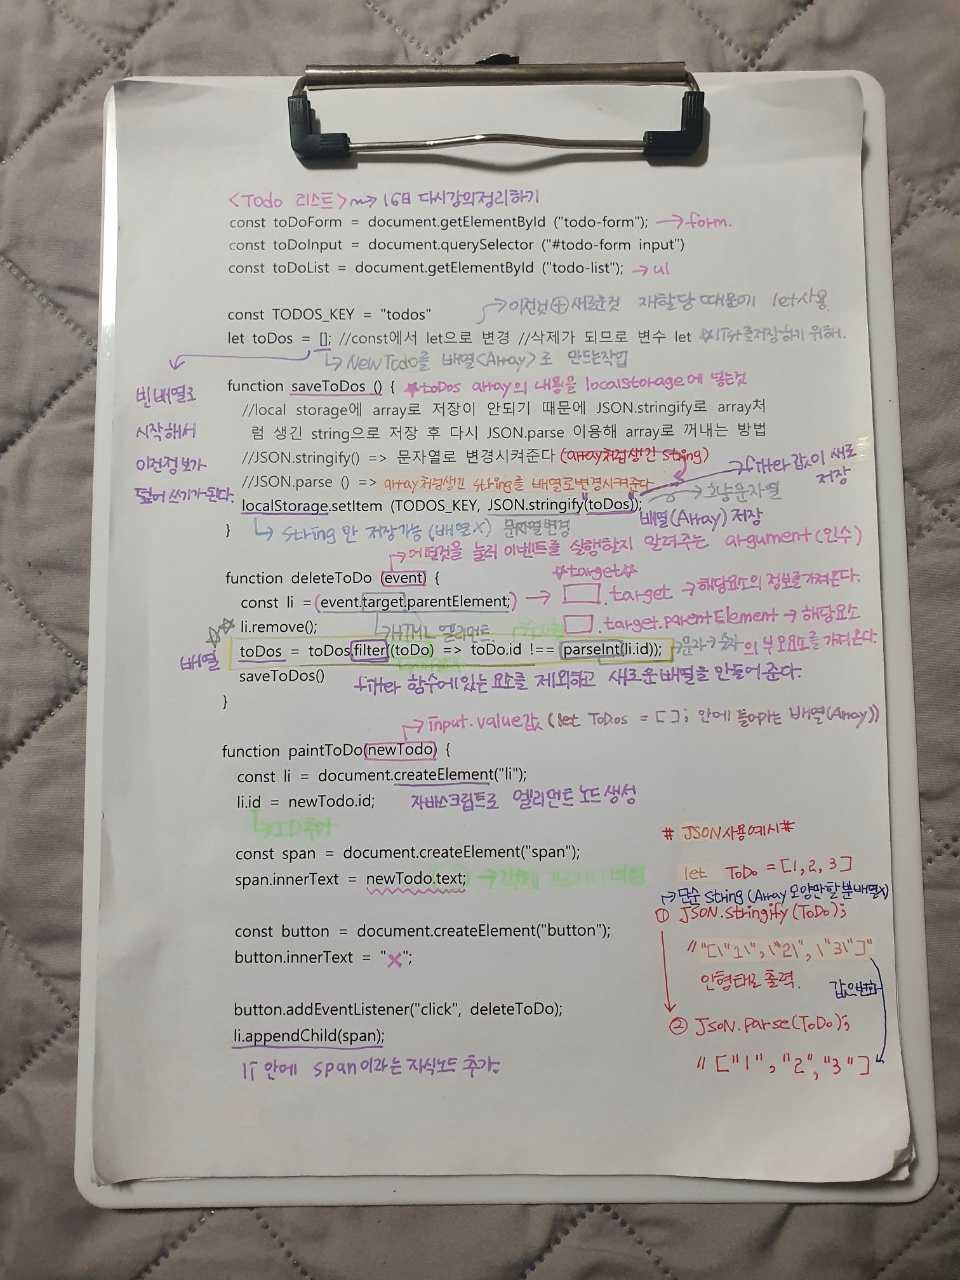 <Todo 리스트> ~> 16日 다시강의정리하기
const toDoForm = document.getElementById ("todo-form"); → form.
const toDoInput = document.querySelector ("#todo-form input")
const toDoList = document.getElementById ("todo-list"); → ul
→ 이전것 ⊕ 새로운것 재할당 때문에 let사용
const TODOS_KEY = "todos"
let toDos = []; //const에서 let으로 변경 //삭제가 되므로 변수 let
↳ New Todo를 배열<Array>로 만드는작업
빈배열로
시작해서
이전정보가
덮어쓰기가된다.
function saveToDos () { ★toDos array의 내용을 localstorage에 넣는것
//local storage에 array로 저장이 안되기 때문에 JSON.stringify로 array처
럼 생긴 string으로 저장 후 다시 JSON.parse 이용해 array로 꺼내는 방법
//JSON.stringify() => 문자열로 변경시켜준다 (array처럼생긴 string)
→ filter 값이 새로
저장
//JSON.parse () => array처럼생긴 string를 배열로변경시켜준다
localStorage.setItem (TODOS_KEY, JSON.stringify(toDos));
→ 그냥문자열
배열(Array) 저장
} ↳ string 만 저장가능 (배열X) 문자열변경
→ 어떤것을 눌러 이벤트를 실행할지 알려주는 argument(인수)
function deleteToDo (event) {
☆target☆
const li = (event.target.parentElement; ) → □.target → 해당요소의 정보를가져온다.
↳ HTML 엘리먼트
li.remove();
□.target.parentElement → 해당요소
의 부모요소를 가져온다.
배열
toDos = toDos.filter((toDo) => toDo.id !== parseInt(li.id)); → 문자→숫자
saveToDos()
filter 함수에있는 요소를 제외하고 새로운배열을 만들어준다.
}
→ input.value값 (let ToDos = [ ]; 안에 들어가는 배열(Array))
function paintToDo(newTodo) {
const li = document.createElement("li");
li.id = newTodo.id; 자바스크립트로 엘리먼트 노드생성
↳ ID추가
const span = document.createElement("span");
span.innerText = newTodo.text;
const button = document.createElement("button");
button.innerText = "X";
button.addEventListener("click", deleteToDo);
li.appendChild(span);
li 안에 span이라는 자식노드 추가.
# JSON사용예시#
let ToDo = [1, 2, 3]
→ 단순 string (Array 모양만할뿐배열X)
① JSON.stringify (ToDo);
// "[\"1\", \"2\", \"3\"]"
인형태로 출력.
값은변화
② JSON.parse(ToDo);
// ["1", "2", "3"]